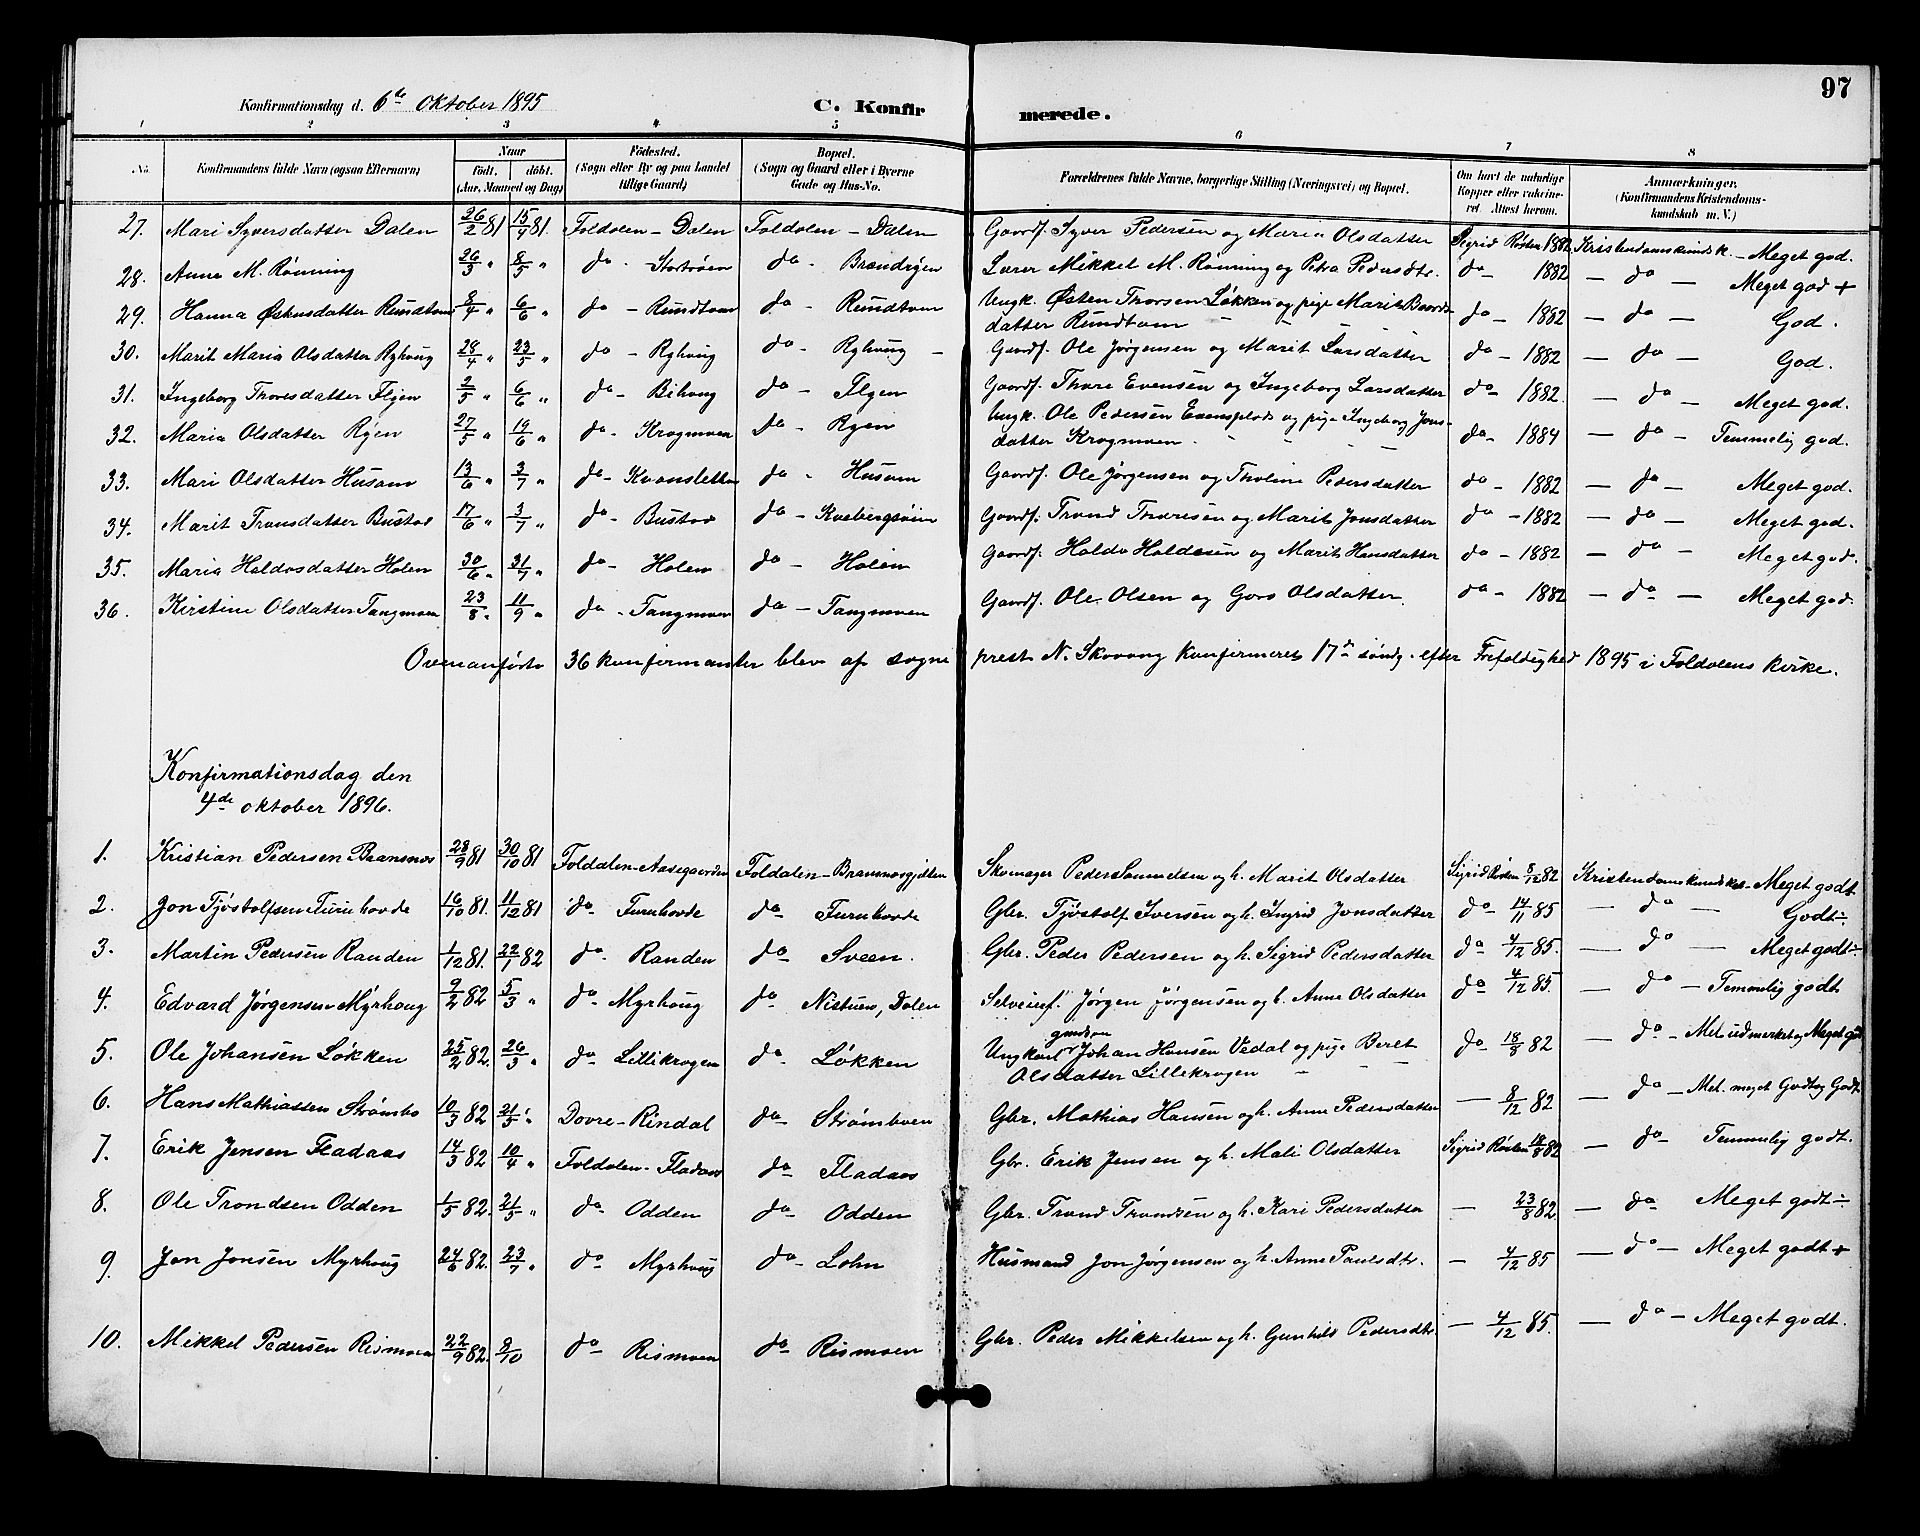 97
Konfirmationsdag d. 6te Oktober 1895 C. Konfirmerede.
1 2 3 4 5 6 7 8
No. Konfirmandens fulde Navn (ogsaa Efternavn) Naar födt. döbt. (Aar, Maaned og Dag) Födested. (Sogn eller By og paa Landet tillige Gaard) Bopæl. (Sogn og Gaard eller i Byerne Gade og Hus-No. Forældrenes fulde Navne, borgerlige Stilling (Næringsvei) og Bopæl. Om havt de naturlige Kopper eller vakcineret. Attest herom. Anmærkninger. (Konfirmandens Kristendomskundskab m. V.)
27. Mari Syversdatter Dalen 26/2 81 15/7 81. Foldalen - Dalen Foldalen - Dalen Gaardf. Syver Pedersen og Maria Olsdatter Sigrid Røsten 1882 Kristendomskundsk. - Meget god.
28. Anna M. Rønning 26/3 " 8/5 " do - Stortrøen do - Brændryen Lærer Mikkel M. Rønning og Petra Pedersdtr. do - 1882 - do - Meget god +
29. Hanna Østensdatter Rundtom 8/4 " 6/6 " do - Rundtom do - Rundtom Ungk. Østen Thorsen Løkken og pige Marit Baardsdatter Rundtom do - 1882 - do - God.
30. Marit Maria Olsdatter Ryhaug 28/4 " 23/5 " do - Ryhaug do - Ryhaug - Gaardf. Ole Jørgensen og Marit Larsdatter do - 1882 - do - God.
31. Ingeborg Thoresdatter Flyen 2/5 " 6/6 " do - Bihaug do - Flyen Gaardf. Thore Evensen og Ingeborg Larsdatter do - 1882. - do - Meget god.
32. Maria Olsdatter Ryen 27/5 " 19/6 " do - Krogmoen do - Ryen Ungk. Ole Pedersen Evensplads og pige Ingeborg Jonsdatter Krogmoen. do - 1884 - do - Temmelig god.
33. Mari Olsdatter Husom 13/6 " 3/7 " do - Kvansletten do - Husom Gaardf. Ole Jørgensen og Tholine Pedersdatter do - 1882 - do - Meget god.
34. Marit Tronsdatter Bustad 17/6 " 3/7 " do - Bustad do - Kvebergsøien Gaardf. Trond Thoresen og Marit Jonsdatter do - 1882 - do - Meget god.
35. Maria Haldosdatter Holen 30/6 " 31/7 " do - Holen do - Holen Gaardf. Haldo Haldosen og Marit Hansdatter do - 1882 - do - Meget god.
36. Kirstine Olsdatter Tangmoen 23/8 " 11/9 " do - Tangmoen do - Tangmoen Gaardf. Ole Olsen og Goro Olsdatter. do - 1882 - do - Meget god.
Ovenanførte 36 konfirmanter blev af sogneprest N. Skovang konfirmeret 17de søndg. efter Trefoldighed 1895 i Foldalens kirke.
Konfirmationsdag den
4de oktober 1896.
1. Kristian Pedersen Bransnos 28/9 81 30/10 81 Foldalen - Aasegaarden Foldalen - Skomager Peder Samuelsen og h. Marit Olsdatter Sigrid Røsten 8/12 82 Kristendomskundska - Meget godt.
2. Jon Tjøstolfsen Furuhovde 16/10 81. 11/12 81 do Furuhovde do Furuhovde Gbr. Tjøstolf Iversen og h. Ingrid Jonsdatter do 14/11 85 - do - Godt ÷
3. Martin Pedersen Randen 1/12 81. 22/1 82 do Randen do Sveen. Gbr. Peder Pedersen og h. Sigrid Pedersdatter do 4/12 85. - do - Meget godt ÷
4. Edvard Jørgensen Myrhaug 9/2 82 5/3 " do Myrhaug do Nistuen, Dalen Selveierf. Jørgen Jørgensen og h. Anne Olsdatter do 4/12 85. - do - Temmelig godt
5. Ole Johansen Løkken 25/2 82. 26/3 " do Lillekrogen do Løkken Ungkarl gmdsøn Johan Hansen Vedal og pige Beret Olsdatter Lillekrogen do 18/8 82 - do - Mel. udmerket og Meget godt
6. Hans Mathiassen Strømbo 10/3 82 21/5 " Dovre - Rindal do Strømboen Gbr. Mathias Hansen og h. Anne Pedersdatter - 8/12 82 - do - Mel. meget Godt og Godt.
7. Erik Jensen Fladaas 14/3 82 10/4 " Foldalen - Fladaas do Fladaas Gbr. Erik Jensen og h. Mali Olsdatter Sigrid Røsten 18/8 82 - do - Temmelig godt.
8. Ole Trondsen Odden 1/5 82. 21/5 " do Odden do Odden Gbr. Trond Trondsen og h. Kari Pedersdatter - 23/8 82. - do Meget godt ÷
9. Jon Jonsen Myrhaug 24/6 82. 23/7 " do Myrhaug do - Lohn Husmand Jon Jørgensen og h. Anne Paulsdtr. - 4/12 85 - do - Meget godt +
10. Mikkel Pedersen Rismoen 22/9 82. 8/10 do Rismoen do Rismoen Gbr. Peder Mikkelsen og h. Gunhild Pedersdtr. - 4/12 85. - do - Meget godt.